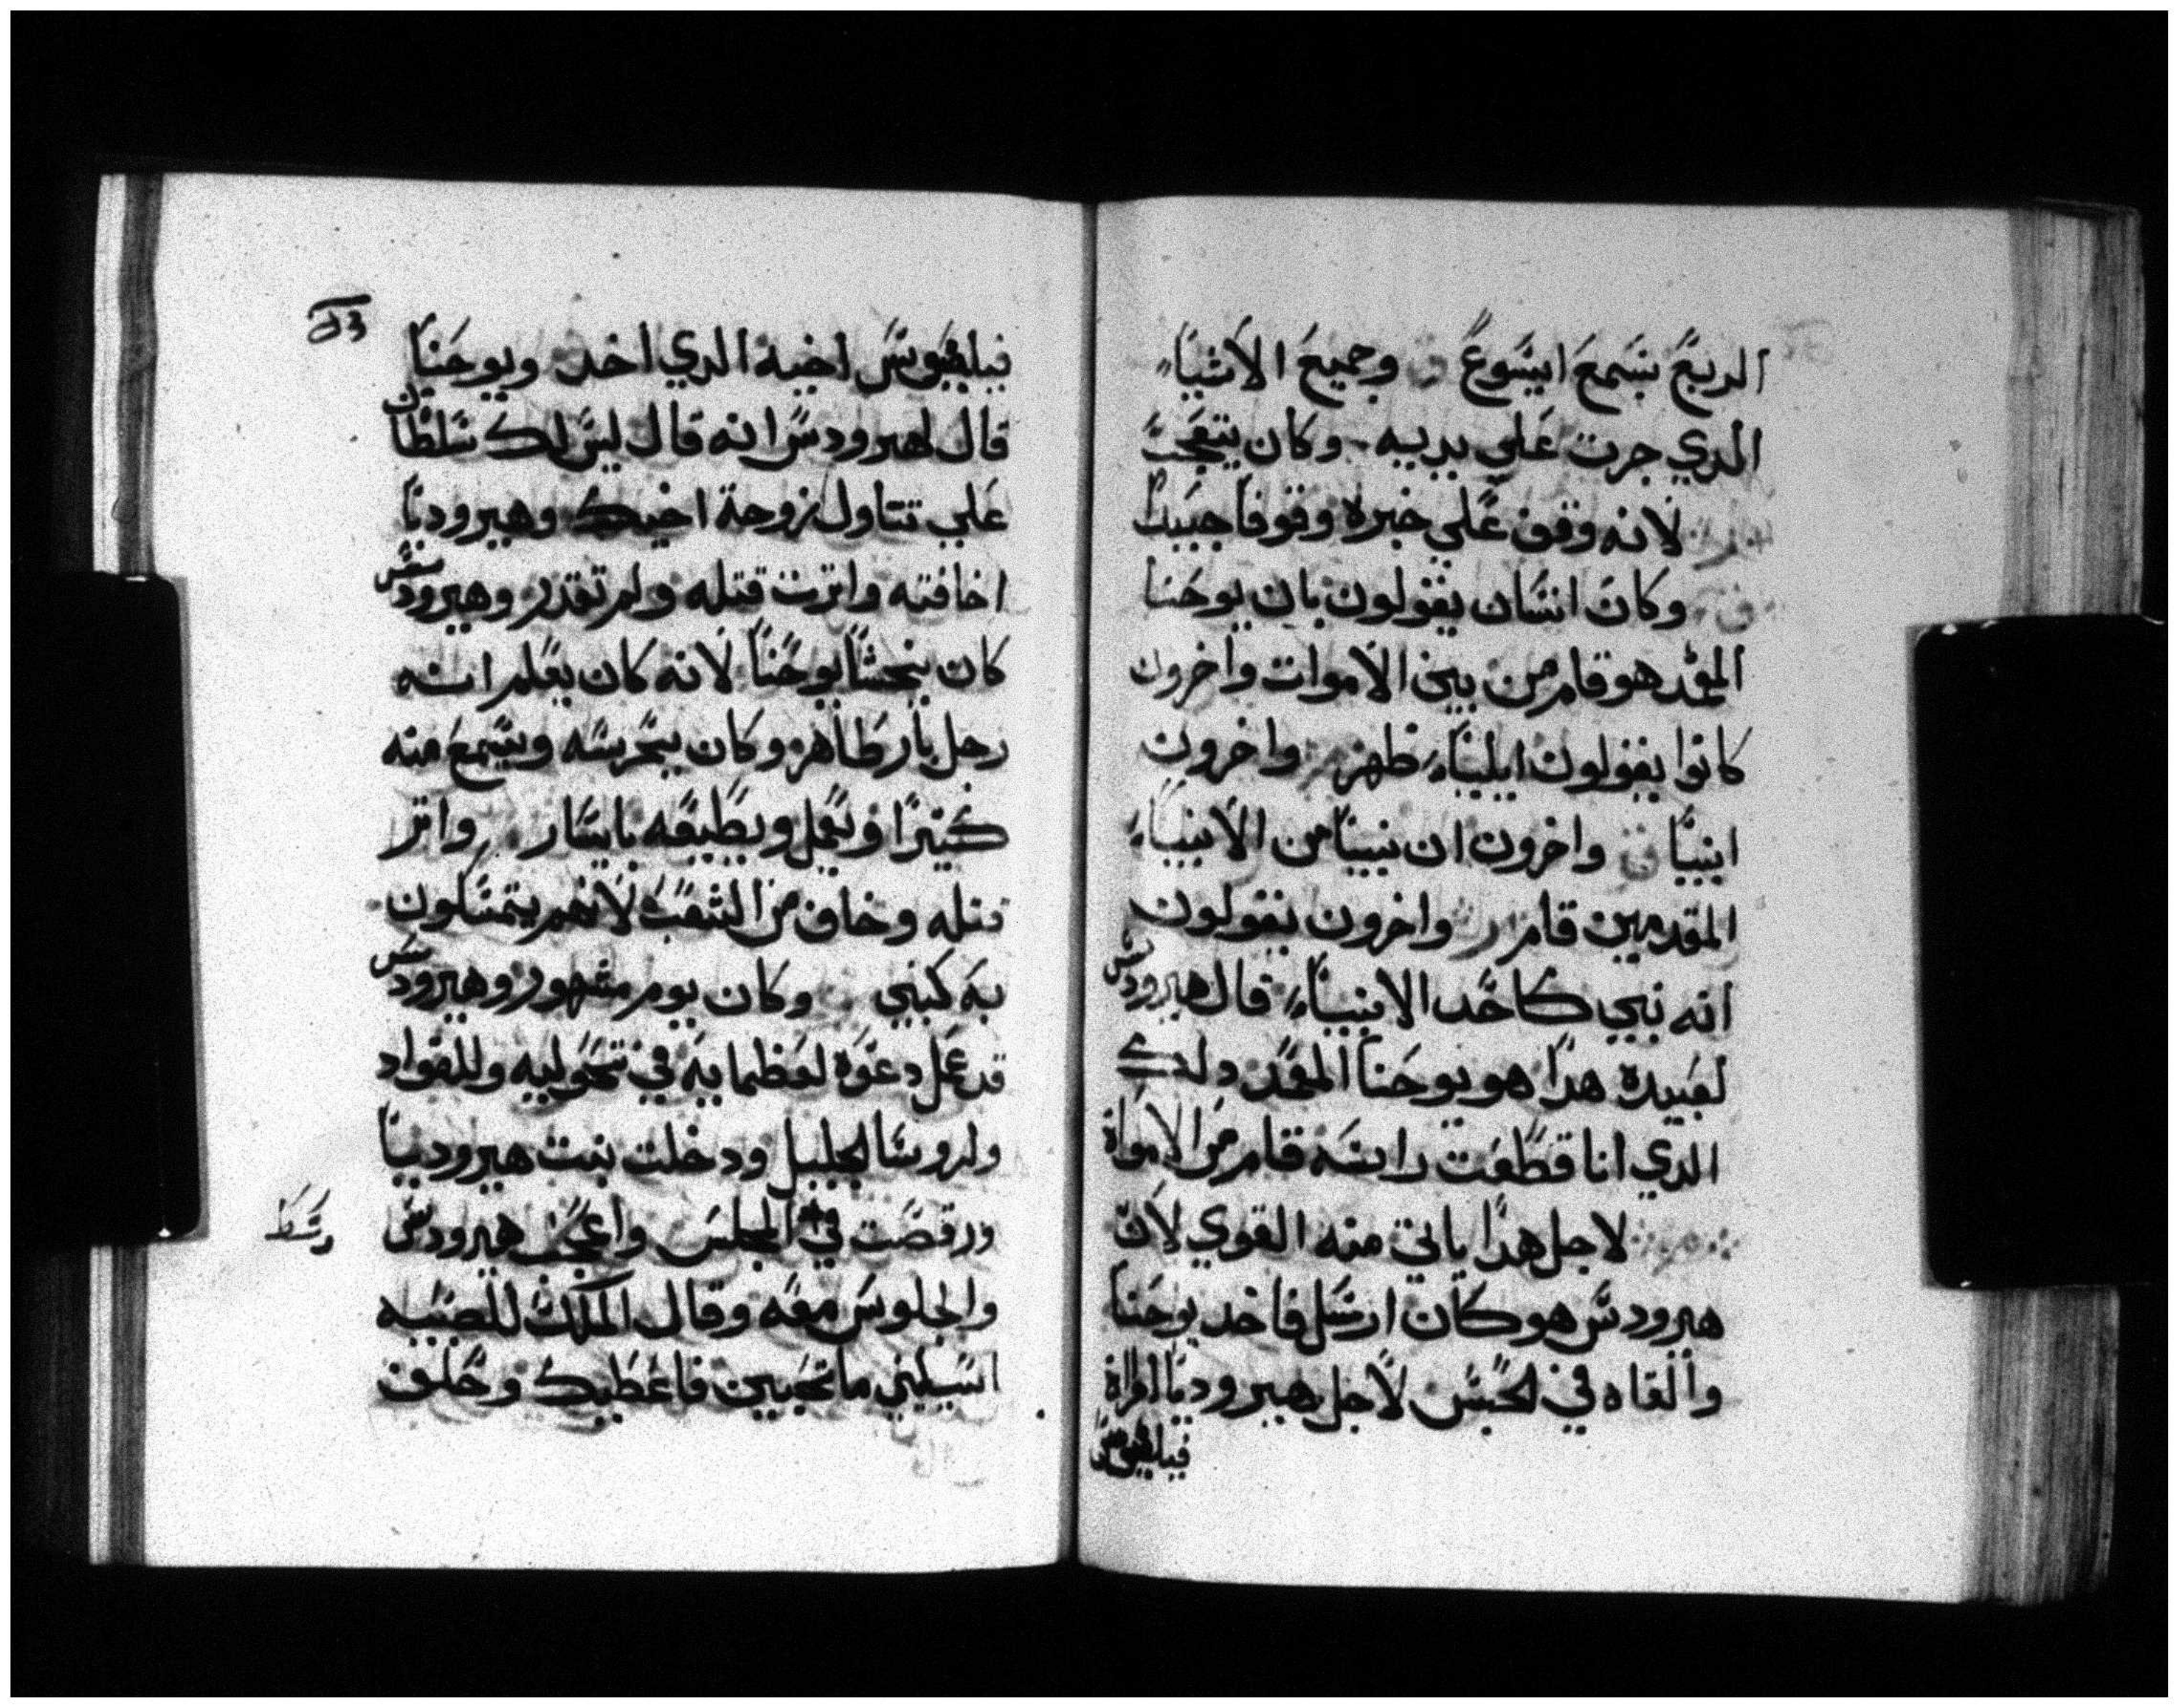 الربع بسمع ايسوع وجميع الاشياء
الدي جرت علي يديه وكان يتعجب
لانه وقف علي خبره وقوفا جيبدا
وكان انسان يقولون بان يوحنا
المعمد هو قام من بين الاموات واخرون
كانوا يقولون ايلياء ظهر واخرون
انبيا واخرون ان نبيا من الانبياء
المقدمين قام واخرون يقولون
انه نبي كاحد الانبياء قال هيرودس
لعبيده هدا هو يوحنا المعمد دلك
الدي انا قطعت راسه قام من الامواة
لاجل هدا ياتي منه القوي لان
هيرودس هو كان ارسل فاخد يوحنا
والقاه في الحبس لاجل هيروديا امراة
فيلبوس
فيلبوس اخيه الدي اخد ويوحنا
قال لهيرودس انه قال ليس لك سلطان
علي تتاول زوجة اخيك وهيروديا
اخافته واترت قتله ولم تقدر وهيرودس
كان يخشا يوحنا لانه كان يعلم انه
رجل بار طاهر وكان يحرسه ويسمع منه
كتيرا ويعمل ويطيعه بايسار واتر
قتله وخاف من الشعب لانهم يتمسكون
به كنبي وكان يوم مشهور وهيرودس
قد عمل دعوه لعظمايه في تحوليه وللقواد
ولروسا الجليل ودخلت بنت هيروديا
ورقصت في المجلس واعجب هيرودس
والجلوس معه وقال الملك للصبيه
اسيليني ما تحبين فاعطيك وحلف